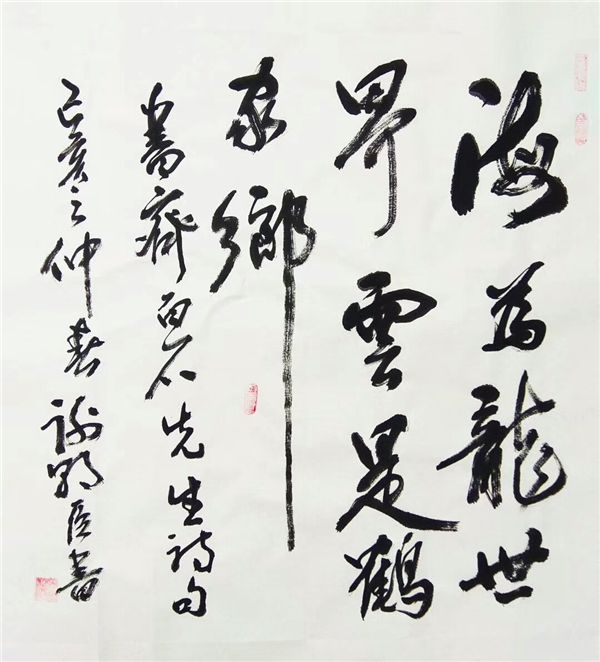 海為龍世
界雲是鶴
家鄉
書齊白石先生詩句
己亥之仲春謝臣書